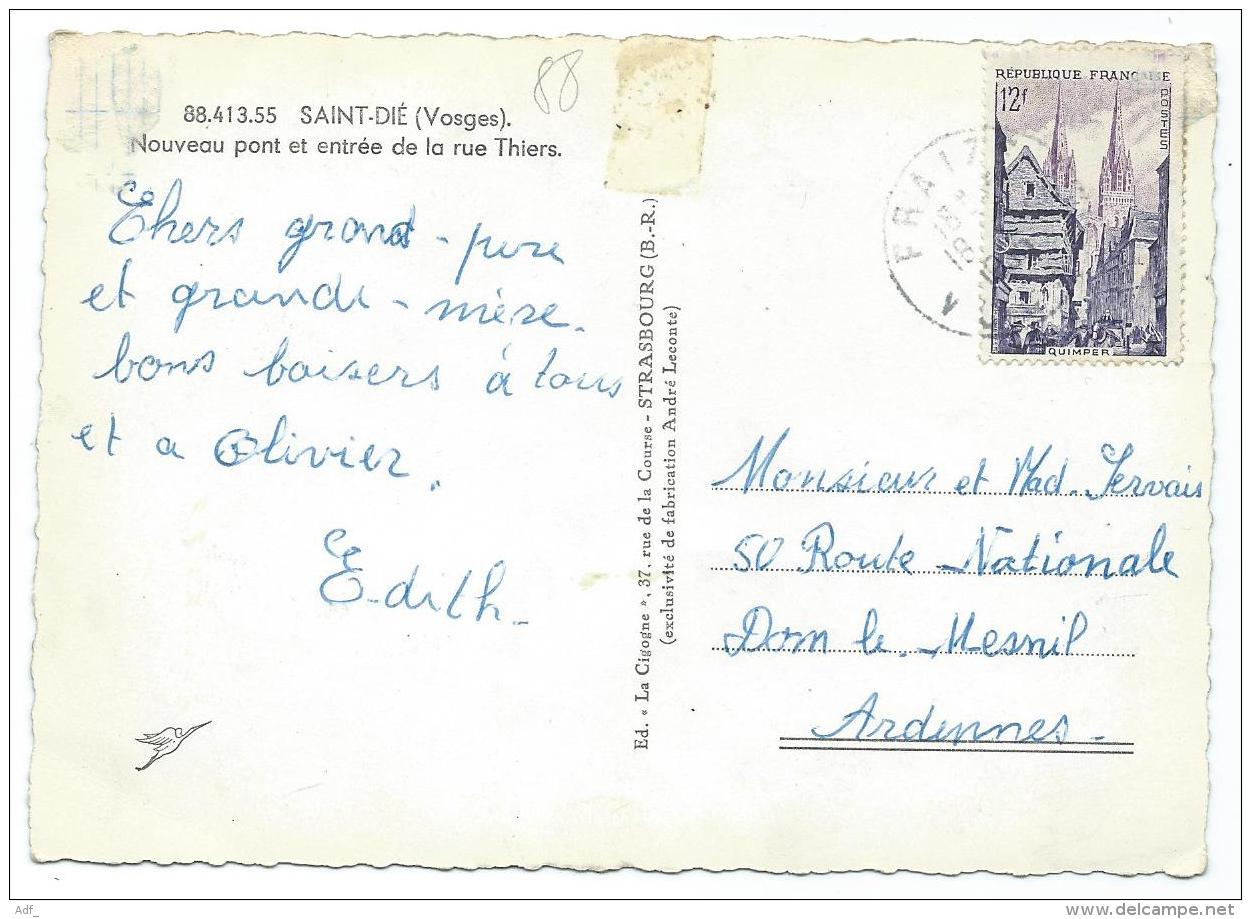 88
88.413.55 SAINT-DIÉ (Vosges).
Nouveau pont et entrée de la rue Thiers.
Chers grand-pere
et grande-mère.
bons baisers à tous
et a Olivier.
Edith-
Ed. « La Cigogne », 37, rue de la Course - STRASBOURG (B.-R.)
(exclusivité de fabrication André Leconte)
RÉPUBLIQUE FRANÇAISE
12f
POSTES
QUIMPER
FRAIZE
Monsieur et Mad. Servais
50 Route Nationale
Dom le Mesnil
Ardennes-
Adf_
delcampe.net